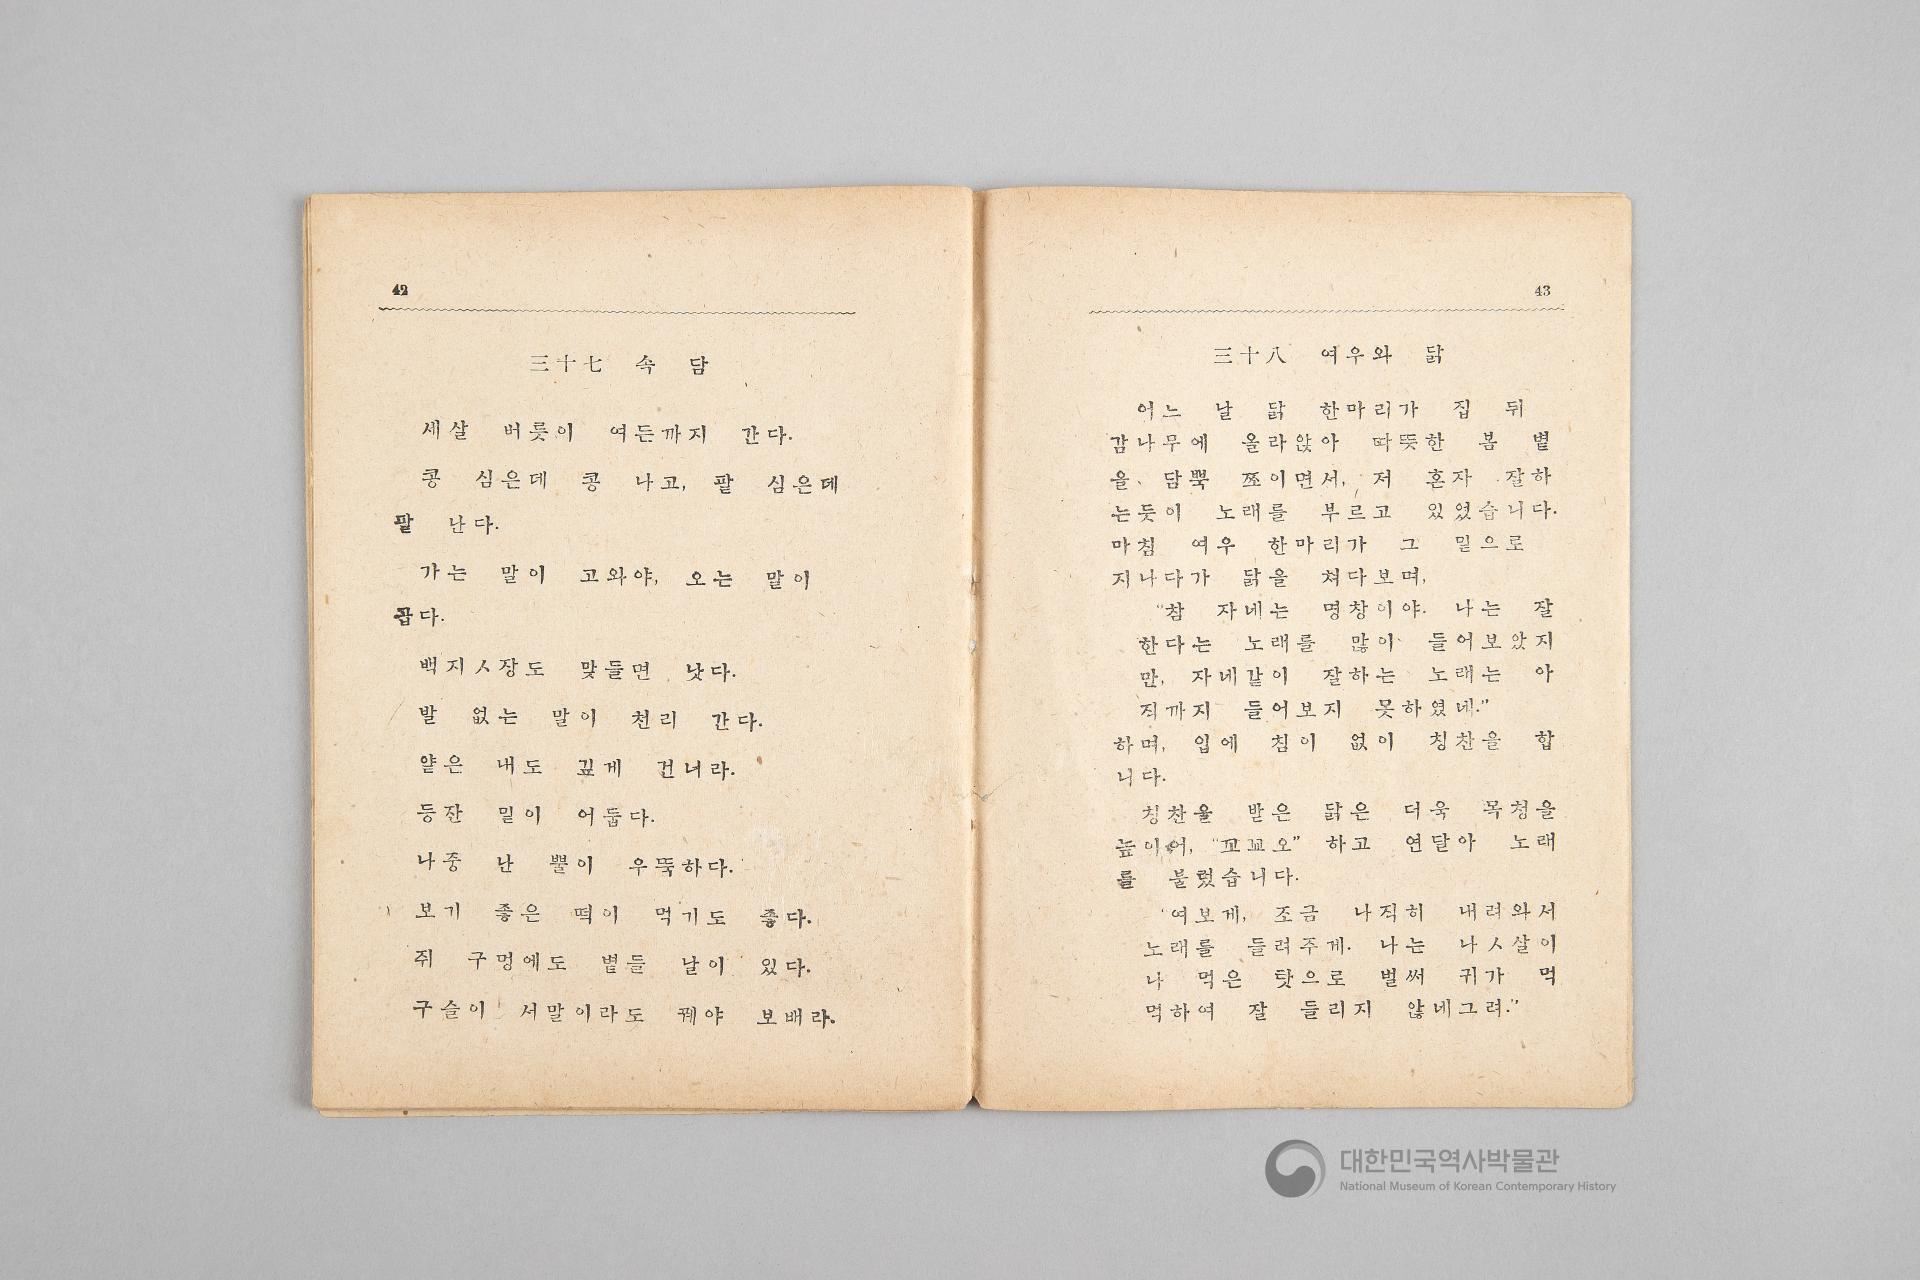 42
三十七 속 담
세살 버릇이 여든까지 간다.
콩 심은데 콩 나고, 팥 심은데
팥 난다.
가는 말이 고와야, 오는 말이
곱다.
백지ㅅ장도 맞들면 낫다.
발 없는 말이 천리 간다.
얕은 내도 깊게 건너라.
등잔 밑이 어둡다.
나중 난 뿔이 우뚝하다.
보기 좋은 떡이 먹기도 좋다.
쥐 구멍에도 볕들 날이 있다.
구슬이 서말이라도 꿰야 보배라.
43
三十八 여우와 닭
어느 날 닭 한마리가 집 뒤
감나무에 올라앉아 따뜻한 봄 볕
을 담뿍 쪼이면서, 저 혼자 잘하
는듯이 노래를 부르고 있었습니다.
마침 여우 한마리가 그 밑으로
지나다가 닭을 쳐다보며,
"참 자네는 명창이야. 나는 잘
한다는 노래를 많이 들어보았지
만, 자네같이 잘하는 노래는 아
직까지 들어보지 못하였네."
하며, 입에 침이 없이 칭찬을 합
니다.
칭찬을 받은 닭은 더욱 목청을
높이어, "꼬꼬오" 하고 연달아 노래
를 불렀습니다.
"여보게, 조금 나직히 내려와서
노래를 들려주게. 나는 나ㅅ살이
나 먹은 탓으로 벌써 귀가 먹
먹하여 잘 들리지 않네그려."
대한민국역사박물관
National Museum of Korean Contemporary History